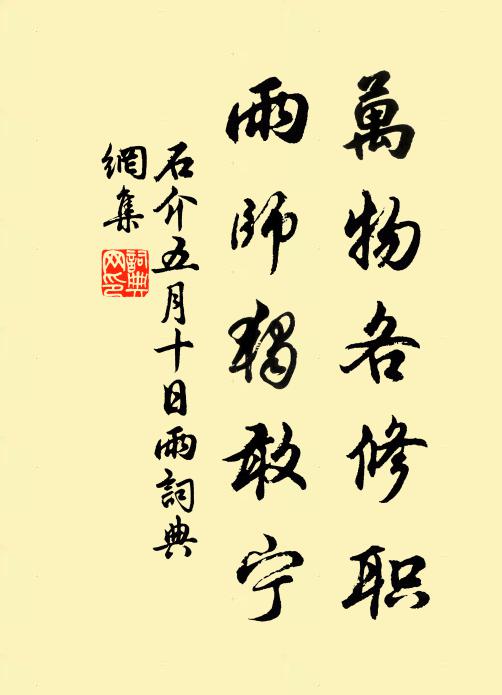 萬物各修职
雨師獨敢宁
石介五月十日雨詞典
網集
詞典网印